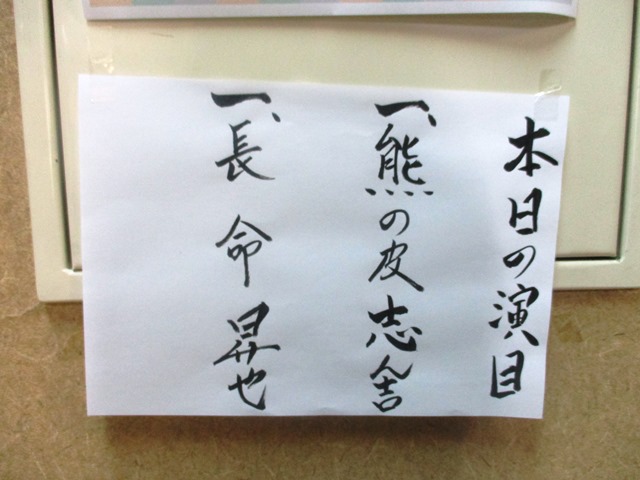 本日の演目
一、熊の皮 志ん吉
一、長命 昇也